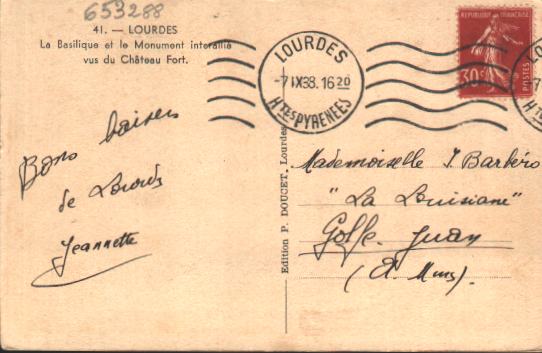 653288
41. — LOURDES
La Basilique et le Monument interallié
vus du Château Fort.
Bons baisers
de Lourdes
Jeannette
Edition P. DOUCET, Lourdes
LOURDES
-7 IX38. 16 20
HTES PYRENEES
REPUBLIQUE FRANÇAISE
30c
POSTES
LO
-7
H
Mademoiselle J. Barbéro
"La Louisiane"
Golfe-Juan
(A. Mmes)